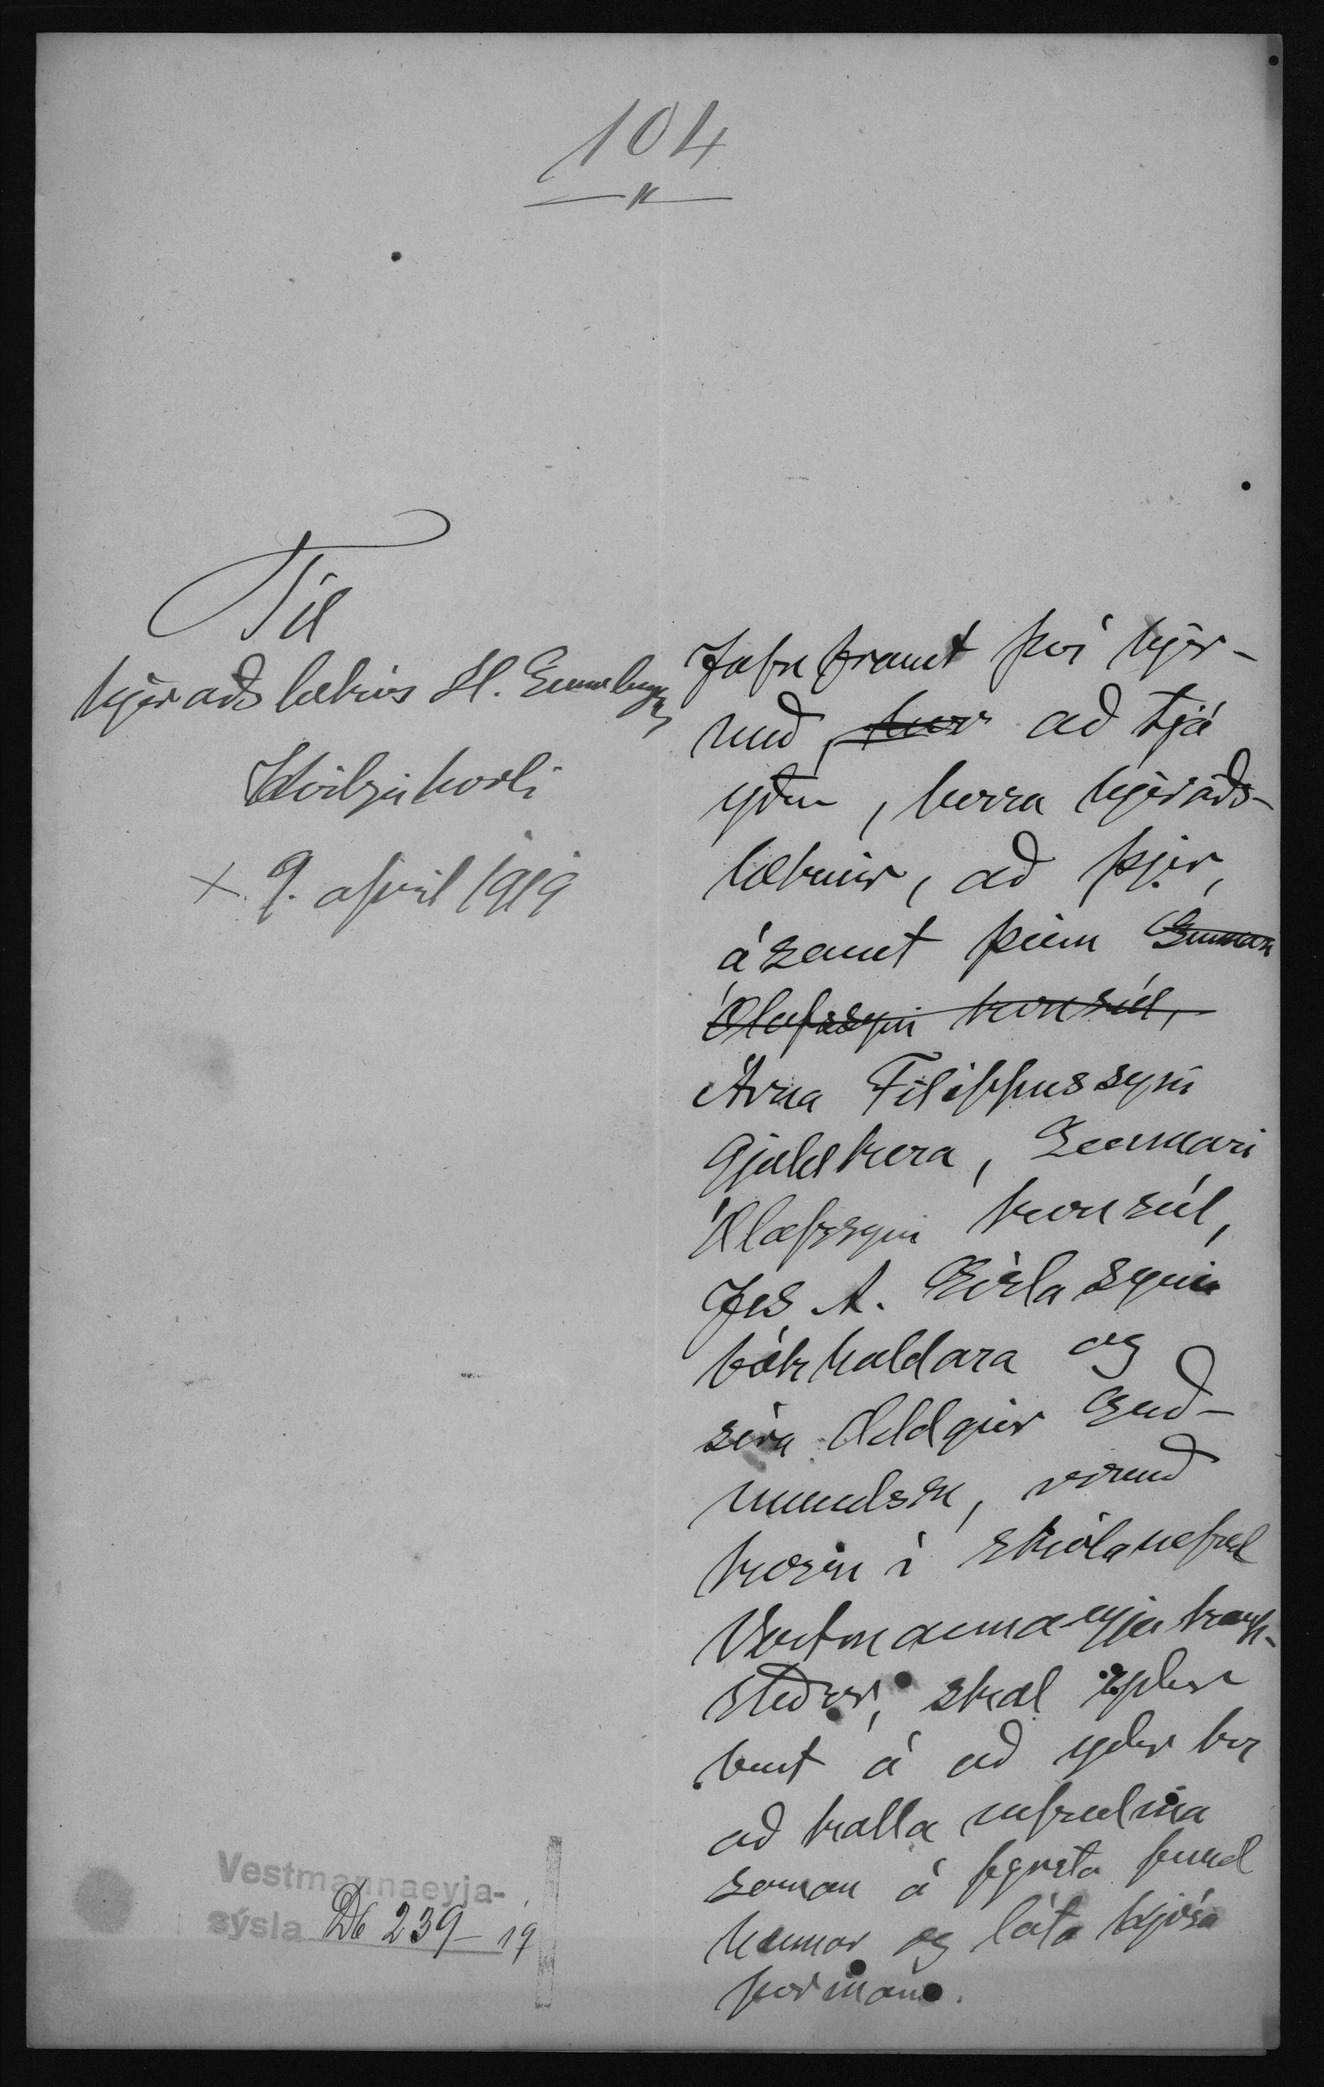 104
Til
hjeraðslæknis H. Gunnlaugss.
Hvilzuhovli
× 9. apríl 1919
Jafnframt því hjer-
með, her að tjá
yður, herra hjeraðs-
læknir, að þjer,
ásamt þeim Gunnar
Ólafssyni konsúl,
Árna Filippussyni
gjaldkera, Gunnari
Ólafssyni konsúl,
Jes A. Gíslasyni
bókhaldara og
síra Oddgeir Guð-
mundsen, eruð
kosin í skólanefnd
Vestmannaeyjakaup-
staðar, skal yður
bent á að yður ber
að kalla nefndina
saman á fyrsta fund
hennar og láta kjósa
formann.
Vestmannaeyja-
sýsla Db 239 – 19